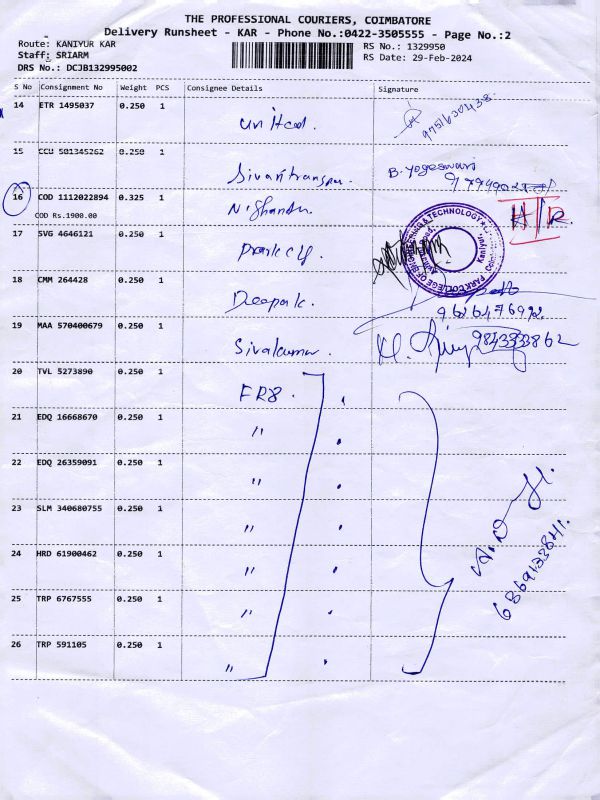 THE PROFESSIONAL COURIERS, COIMBATORE
Delivery Runsheet - KAR - Phone No.:0422-3505555 - Page No.:2
Route: KANIYUR KAR
Staff: SRIARM
DRS No.: DCJB132995002
RS No.: 1329950
RS Date: 29-Feb-2024
S No Consignment No Weight PCS Consignee Details Signature
14 ETR 1495037 0.250 1 United.
9751630438
15 CCU 501345262 0.250 1
B. Yogeswari
16 COD 1112022894 0.325 1 Nishanth.
COD Rs.1900.00
H/R
17 SVG 4646121 0.250 1 Park clg
PARK COLLEGE OF ENGINEERING & TECHNOLOGY
Kaniyur,
18 CMM 264428 0.250 1 Deepak.
9626476992
19 MAA 570400679 0.250 1 Sivakumar.
9843333862
20 TVL 5273890 0.250 1 FR8.
21 EDQ 16668670 0.250 1 "
22 EDQ 26359091 0.250 1 "
23 SLM 340680755 0.250 1 "
24 HRD 61900462 0.250 1 "
25 TRP 6767555 0.250 1 "
26 TRP 591105 0.250 1 "